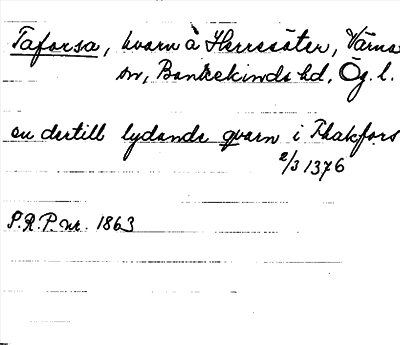 Taforsa, kvarn å Herrsäter, Värna
sn, Bankekinds hd, Ög. l.
en dertill lydande qvarn i Thakfors
2/3 1376
S.R.P. nr. 1863